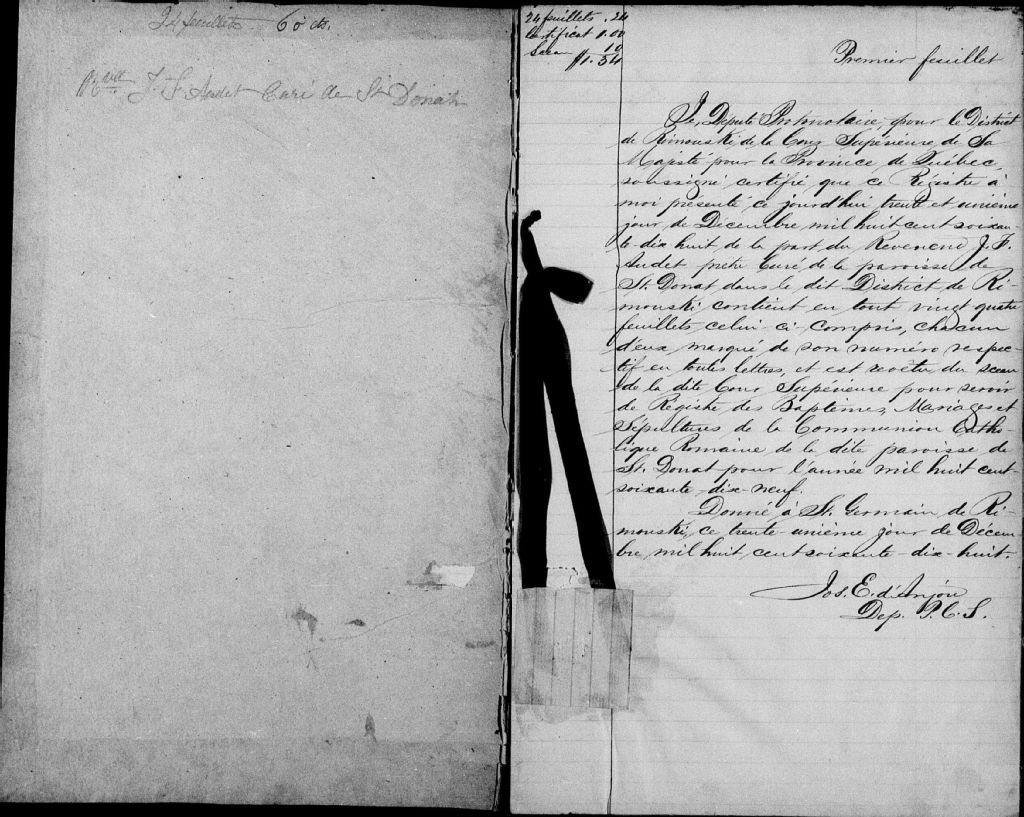 24 feuillets - 60 cts.
Révd J. F. Audet Curé de St Donat
24 feuillets . 24
Certificat 1.00
Sceau 10
$1.34
Premier feuillet
Je, Député Protonotaire, pour le District
de Rimouski de la Cour Supérieure de Sa
Majesté pour la Province de Québec,
soussigné certifie que ce Régistre à
moi présenté ce jourd'hui trente et unième
jour de Décembre mil huit cent soixan-
te-dix huit de la part du Reverend J. F.
Audet prêtre Curé de la paroisse de
St. Donat dans le dit District de Ri-
mouski contient en tout vingt quatre
feuillets celui-ci compris, chacun
d'eux marqué de son numéro respec-
tif en toutes lettres, et est revêtu du sceau
de la dite Cour Supérieure pour servir
de Régistre des Baptêmes, Mariages et
Sépultures de la Communion Catho-
lique Romaine de la dite paroisse de
St. Donat pour l'année mil huit cent
soixante-dix-neuf.
Donné à St. Germain de Ri-
mouski, ce trente unième jour de Décem-
bre mil huit cent soixante-dix-huit.
Jos. E. d'Anjou
Dep. P. C. S.